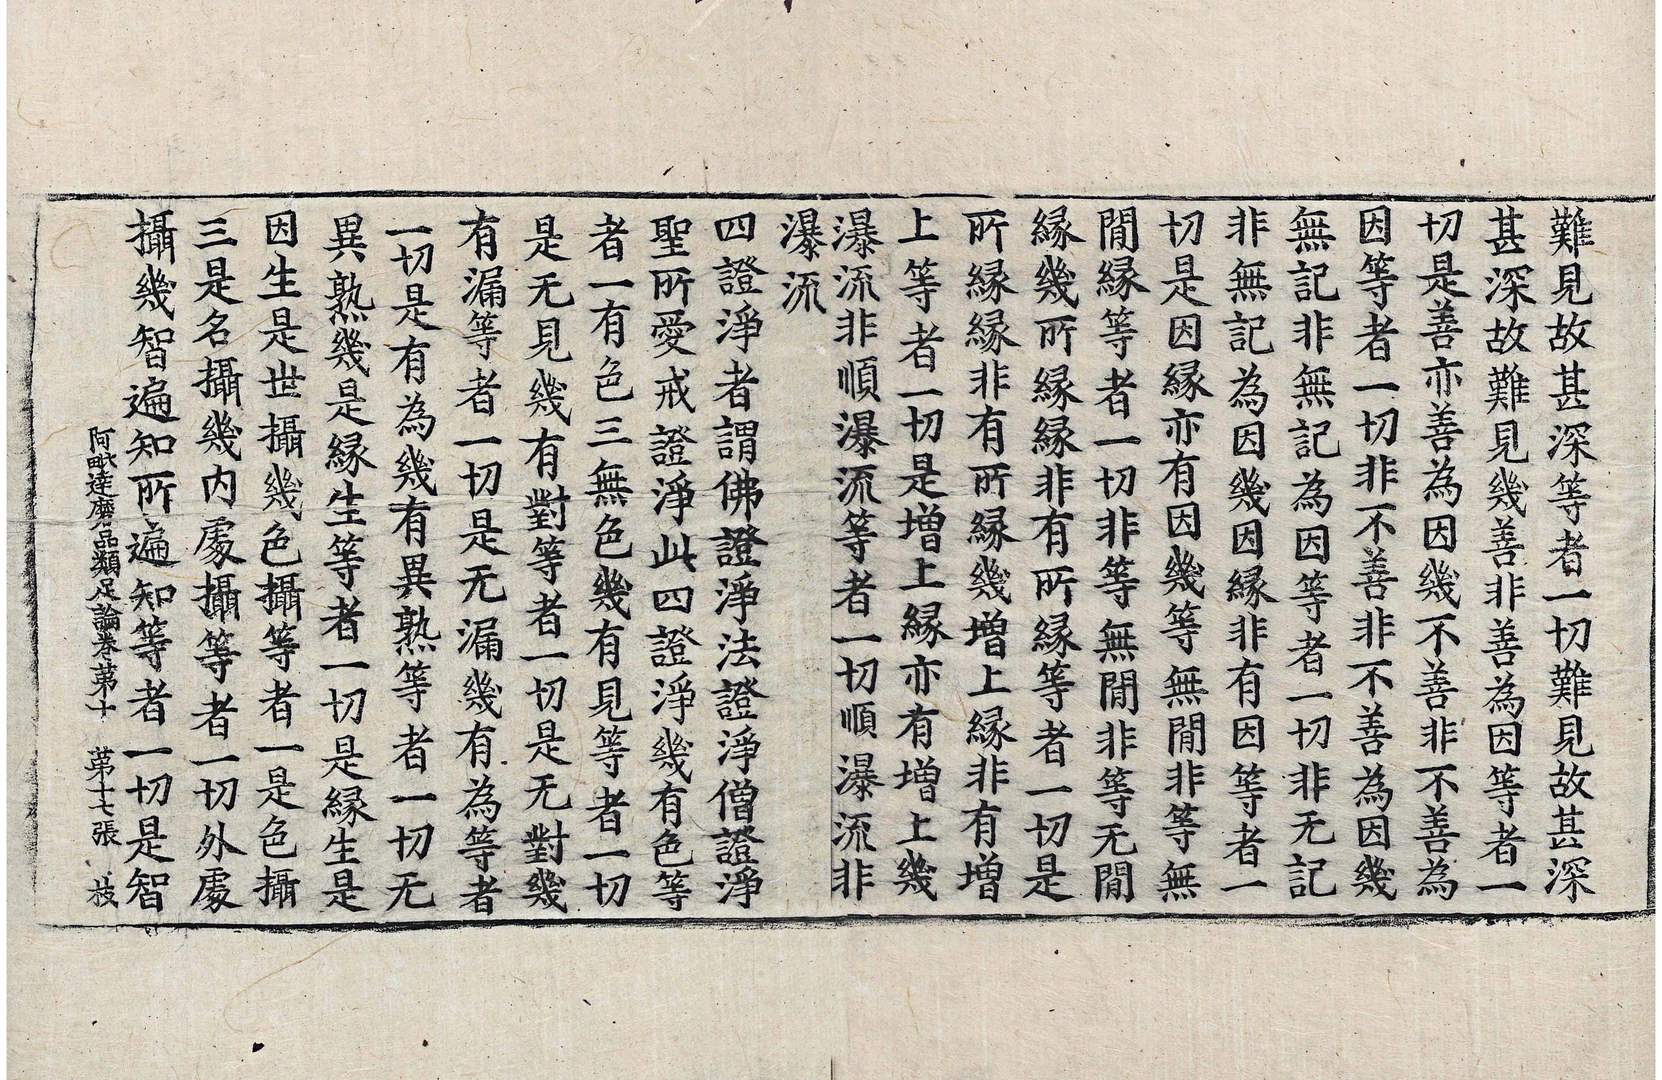 難見故甚深等者一切難見故甚深
甚深故難見幾善非善為因等者一
切是善亦善為因幾不善非不善為
因等者一切非不善非不善為因幾
無記非無記為因等者一切非无記
非無記為因幾因縁非有因等者一
切是因縁亦有因幾等無閒非等無
閒縁等者一切非等無閒非等无閒
縁幾所縁縁非有所縁等者一切是
所縁縁非有所縁幾增上縁非有增
上等者一切是增上縁亦有增上幾
瀑流非順瀑流等者一切順瀑流非
瀑流
四證淨者謂佛證淨法證淨僧證淨
聖所愛戒證淨此四證淨幾有色等
者一有色三無色幾有見等者一切
是无見幾有對等者一切是无對幾
有漏等者一切是无漏幾有為等者
一切是有為幾有異熟等者一切无
異熟幾是縁生等者一切是縁生是
因生是世攝幾色攝等者一是色攝
三是名攝幾内處攝等者一切外處
攝幾智遍知所遍知等者一切是智
阿毗達磨品類足論卷第十 第十七張 枝